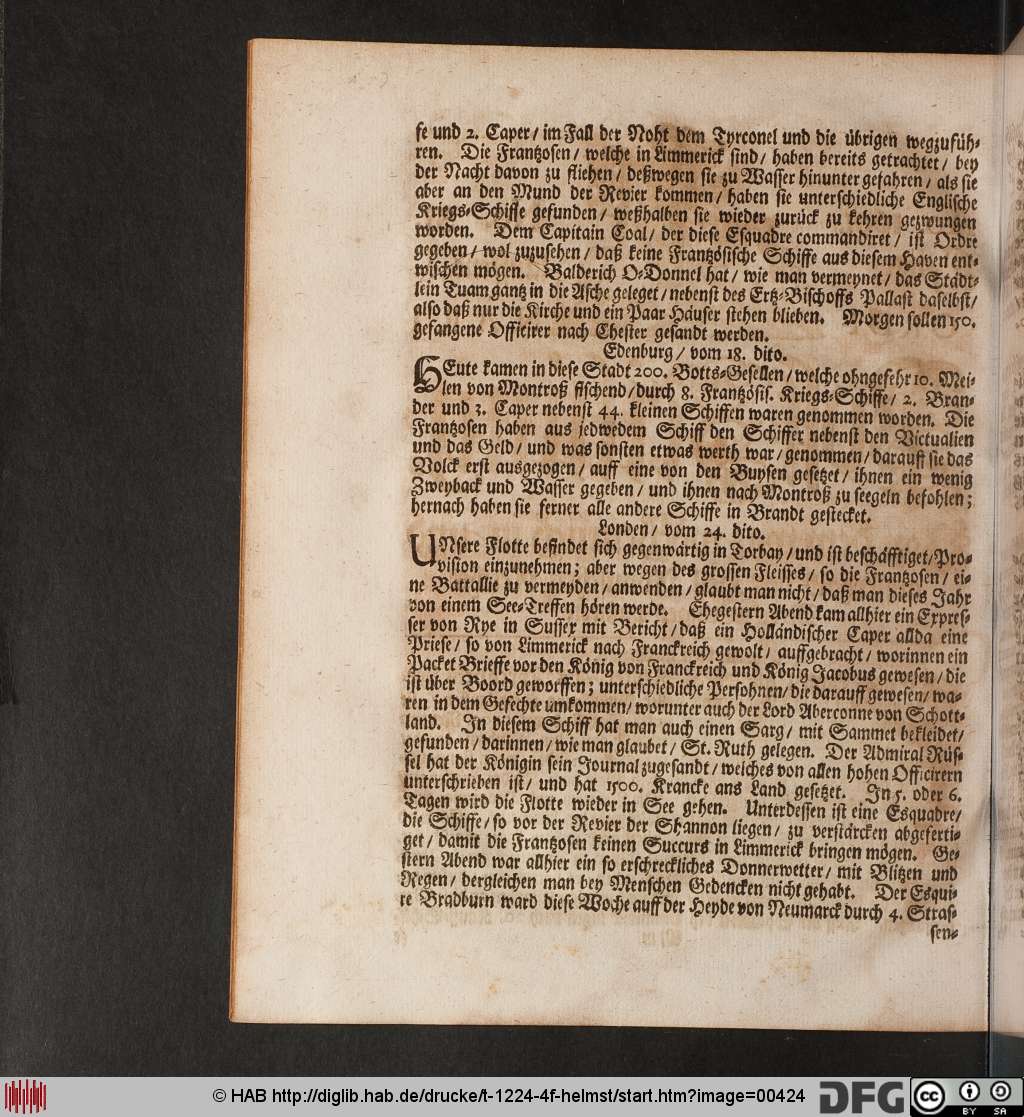 se und 2. Caper/ im Fall der Noht dem Tyrconel und die übrigen wegzufüh-
ren. Die Frantzosen/ welche in Limmerick sind/ haben bereits getrachtet/ bey
der Nacht davon zu fliehen/ deßwegen sie zu Wasser hinunter gefahren/ als sie
aber an den Mund der Revier kommen/ haben sie unterschiedliche Englische
Kriegs-Schiffe gefunden/ weßhalben sie wieder zurück zu kehren gezwungen
worden. Dem Capitain Coal/ der diese Esquadre commandiret/ ist Ordre
gegeben/ wol zuzusehen/ daß keine Frantzösische Schiffe aus diesem Haven ent-
wischen mögen. Balderich O-Donnel hat/ wie man vermeynet/ das Städt-
lein Tuam gantz in die Asche geleget/ nebenst des Ertz-Bischoffs Pallast daselbst/
also daß nur die Kirche und ein Paar Häuser stehen blieben. Morgen sollen 150.
gefangene Officirer nach Chester gesandt werden.
Edenburg/ vom 18. dito.
HEute kamen in diese Stadt 200. Botts-Gesellen/ welche ohngefehr 10. Mei-
len von Montroß fischend/ durch 8. Frantzösis. Kriegs-Schiffe/ 2. Bran-
der und 3. Caper nebenst 44. kleinen Schiffen waren genommen worden. Die
Frantzosen haben aus jedwedem Schiff den Schiffer nebenst den Victualien
und das Geld/ und was sonsten etwas werth war/ genommen/ darauff sie das
Volck erst ausgezogen/ auff eine von den Buysen gesetzet/ ihnen ein wenig
Zweyback und Wasser gegeben/ und ihnen nach Montroß zu seegeln befohlen;
hernach haben sie ferner alle andere Schiffe in Brandt gestecket.
Londen/ vom 24. dito.
UNsere Flotte befindet sich gegenwärtig in Torbay/ und ist beschäfftiget/ Pro-
vision einzunehmen; aber wegen des grossen Fleisses/ so die Frantzosen/ ei-
ne Battallie zu vermeyden/ anwenden/ glaubt man nicht/ daß man dieses Jahr
von einem See-Treffen hören werde. Ehegestern Abend kam allhier ein Expres-
ser von Rye in Sussex mit Bericht/ daß ein Holländischer Caper allda eine
Priese/ so von Limmerick nach Franckreich gewolt/ auffgebracht/ worinnen ein
Packet Brieffe vor den König von Franckreich und König Jacobus gewesen/ die
ist über Boord geworffen; unterschiedliche Persohnen/ die darauff gewesen/ wa-
ren in dem Gefechte umkommen/ worunter auch der Lord Aberconne von Schott-
land. In diesem Schiff hat man auch einen Sarg/ mit Sammet bekleidet/
gefunden/ darinnen/ wie man glaubet/ St. Ruth gelegen. Der Admiral Rüs-
sel hat der Königin sein Journal zugesandt/ welches von allen hohen Officirern
unterschrieben ist/ und hat 1500. Krancke ans Land gesetzet. In 5. oder 6.
Tagen wird die Flotte wieder in See gehen. Unterdessen ist eine Esquadre/
die Schiffe/ so vor der Revier der Shannon liegen/ zu verstärcken abgeferti-
get/ damit die Frantzosen keinen Succurs in Limmerick bringen mögen. Ge-
stern Abend war allhier ein so erschreckliches Donnerwetter/ mit Blitzen und
Regen/ dergleichen man bey Menschen Gedencken nicht gehabt. Der Esqui-
re Bradburn ward diese Woche auff der Heyde von Neumarck durch 4. Stras-
sen-
© HAB http://diglib.hab.de/drucke/t-1224-4f-helmst/start.htm?image=00424
DFG
cc
BY SA